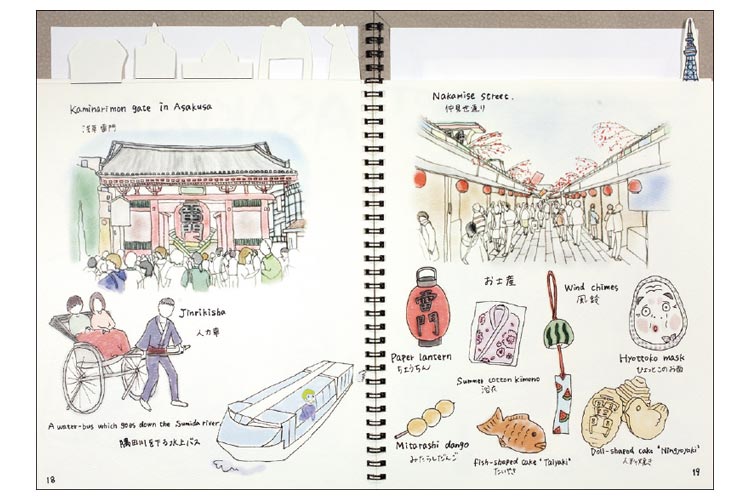 Kaminarimon gate in Asakusa
浅草 雷門
雷門
Jinrikisha
人力車
A water-bus which goes down the Sumida river.
隅田川を下る水上バス
18
Nakamise street.
仲見世通り
お土産
雷門
Paper lantern
ちょうちん
Summer cotton kimono
浴衣
Wind chimes
風鈴
Hyottoko mask
ひょっとこのお面
Mitarashi dango
みたらしだんご
fish-shaped cake "Taiyaki"
たいやき
Doll-shaped cake "Ningyoyaki"
人形焼き
19